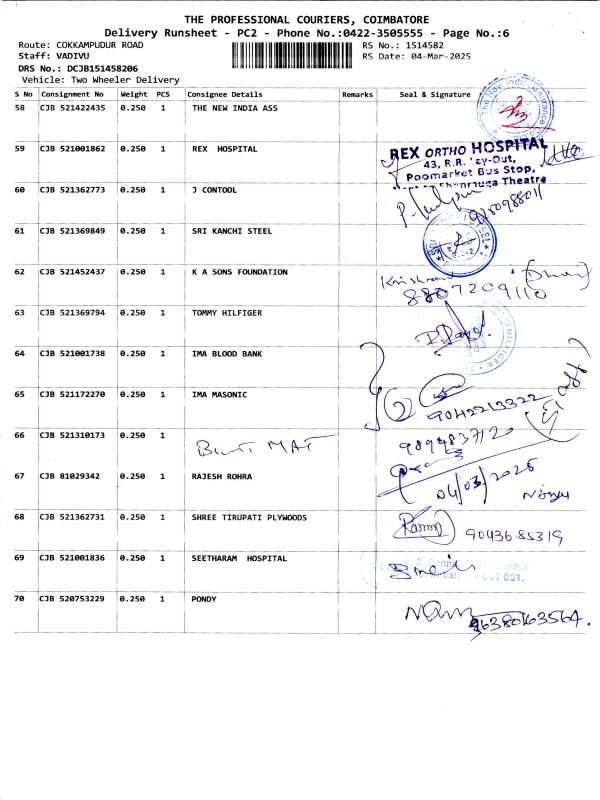 THE PROFESSIONAL COURIERS, COIMBATORE
Delivery Runsheet - PC2 - Phone No.:0422-3505555 - Page No.:6
Route: COKKAMPUDUR ROAD RS No.: 1514582
Staff: VADIVU RS Date: 04-Mar-2025
DRS No.: DCJB151458206
Vehicle: Two Wheeler Delivery
S No Consignment No Weight PCS Consignee Details Remarks Seal & Signature
58 CJB 521422435 0.250 1 THE NEW INDIA ASS
59 CJB 521001862 0.250 1 REX HOSPITAL
REX ORTHO HOSPITAL
43, R.R. Lay-Out,
Poomarket Bus Stop,
Shanmuga Theatre
60 CJB 521362773 0.250 1 J CONTOOL
61 CJB 521369849 0.250 1 SRI KANCHI STEEL
62 CJB 521452437 0.250 1 K A SONS FOUNDATION
8807209110
63 CJB 521369794 0.250 1 TOMMY HILFIGER
64 CJB 521001738 0.250 1 IMA BLOOD BANK
65 CJB 521172270 0.250 1 IMA MASONIC
9042213322
66 CJB 521310173 0.250 1 MAT
67 CJB 81029342 0.250 1 RAJESH ROHRA
04/03/2025
68 CJB 521362731 0.250 1 SHREE TIRUPATI PLYWOODS
9043685319
69 CJB 521001836 0.250 1 SEETHARAM HOSPITAL
70 CJB 520753229 0.250 1 PONDY